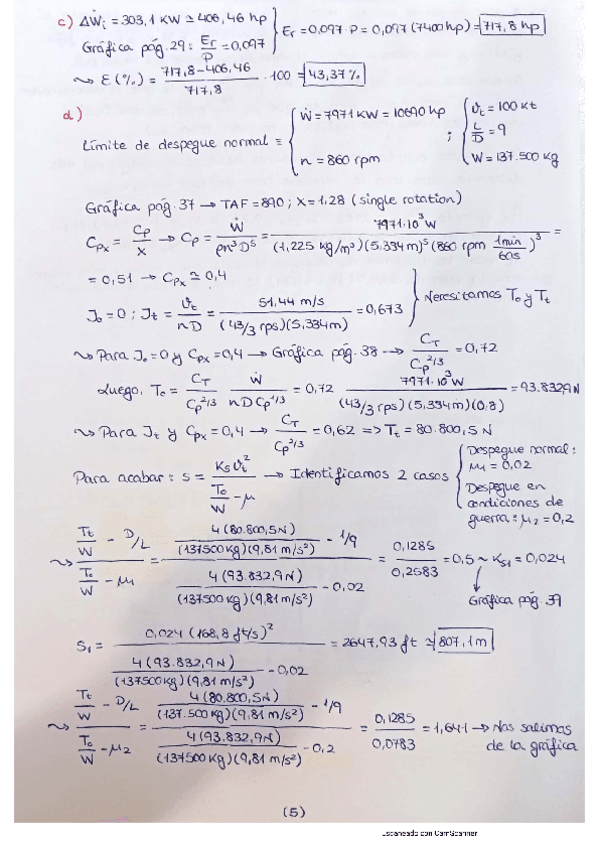 c) ΔẆi = 303,1 KW ≃ 406,46 hp } Er = 0,097 · P = 0,097 (7400 hp) = 717,8 hp
Gráfica pág. 29 : Er/P = 0,097
⤳ E (%) = (717,8 - 406,46)/717,8 · 100 = 43,37 %
d)
Límite de despegue normal ≡ { Ẇ = 7971 KW = 10690 hp ; n = 860 rpm ; { Vt = 100 Kt ; L/D = 9 ; W = 137.500 kg
Gráfica pág. 37 → TAF = 890 ; X = 1.28 (single rotation)
CPx = CP/X → CP = Ẇ/(ρn³D⁵) = 7971·10³ W/((1,225 kg/m³)(5.334 m)⁵(860 rpm 1min/60s)³) =
= 0,51 → CPx ≃ 0,4
J₀ = 0 ; Jt = Vt/(nD) = 51,44 m/s/((43/3 rps)(5,334 m)) = 0,673 } Necesitamos T₀ y Tt
⤳ Para J₀ = 0 y CPx = 0,4 → Gráfica pág. 38 → CT/CP^2/3 = 0,72
Luego, T₀ = CT/CP^2/3 Ẇ/(nDCP^1/3) = 0,72 7971·10³ W/((43/3 rps)(5,334 m)(0,8)) = 93.832,9 N
⤳ Para Jt y CPx = 0,4 → CT/CP^2/3 = 0,62 => Tt = 80.800,5 N
Para acabar : s = KsVt²/(T₀/W - μ) → Identificamos 2 casos { Despegue normal : μ1 = 0,02
Despegue en condiciones de guerra : μ2 = 0,2
⤳ (Tt/W - D/L)/(T₀/W - μ1) = (4(80.800,5N)/((137500 kg)(9,81 m/s²)) - 1/9)/(4(93.832,9 N)/((137500 kg)(9,81 m/s²)) - 0,02) = 0,1285/0,2583 = 0,5 ~ Ks1 = 0,024
Gráfica pág. 39
S1 = 0,024 (168,8 ft/s)²/(4(93.832,9 N)/((137500 kg)(9,81 m/s²)) - 0,02) = 2647,93 ft ≃ 807,1 m
⤳ (Tt/W - D/L)/(T₀/W - μ2) = (4(80.800,5N)/((137.500 kg)(9,81 m/s²)) - 1/9)/(4(93.832,9N)/((137500 kg)(9,81 m/s²)) - 0,2) = 0,1285/0,0783 = 1,641 → Nos salimos
de la gráfica
(5)
Escaneado con CamScanner